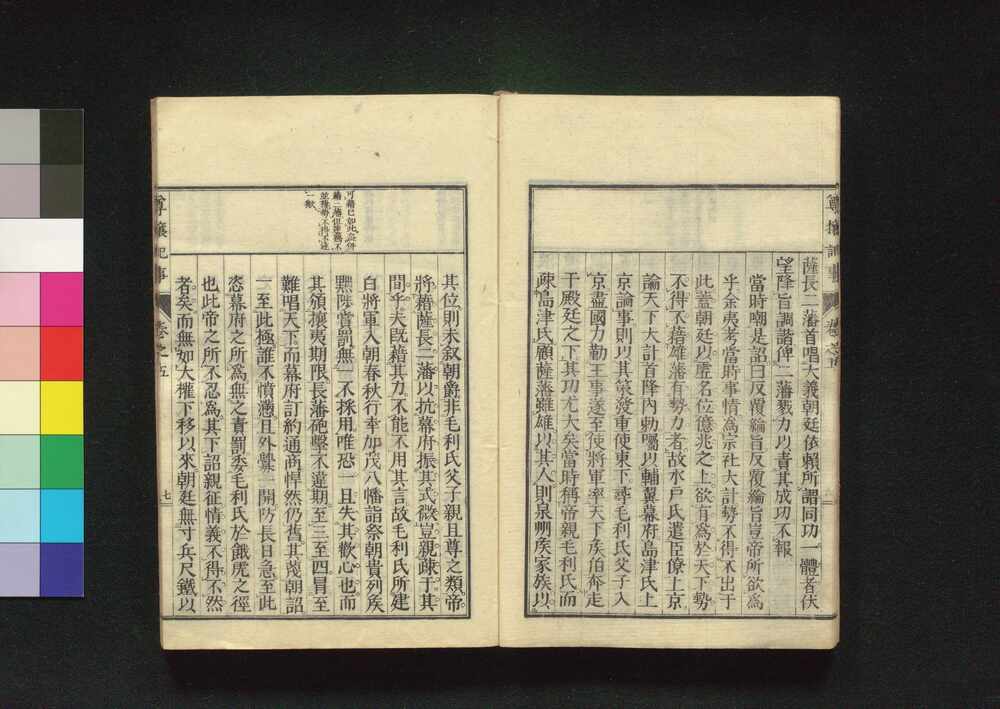 尊攘記事
卷之五
薩長二藩首唱大義朝廷依賴所謂同功一體者伏
望降旨調諧俾二藩戮力以責其成功不報
當時嘲是詔曰反覆綸旨反覆綸旨豈帝所欲爲
乎余夷考當時事情爲宗社大計勢不得不出于
此蓋朝廷以虛名位億兆之上欲有爲於天下勢
不得不藉雄藩有勢力者故水戶氏遣臣僚上京
論天下大計首降內勅囑以輔翼幕府島津氏上
京論事則以其策發重使東下毛利氏父子入
京盡國力勤王事遂至使將軍率天下矦伯奔走
于殿廷之下其功尤大矣當時稱帝親毛利氏而
疎島津氏顧薩藩雖雄以其人則泉州矦家族以
其位則未叙朝爵非毛利氏父子親且尊之類帝
將藉薩長二藩以抗幕府振其式微豈親疎于其
間乎夫既藉其力不能不用其言故毛利氏所建
白將軍入朝春秋行幸加茂八幡詣祭朝貴列矦
黜陟賞罰無一不採用唯恐一旦失其歡心也而
其領攘夷期限長藩砲擊不違期至三至四冒至
難唱天下而幕府訂約通商悍然仍舊其蔑朝詔
一至此極誰不憤懣且外釁一開防長日急至此
恣幕府之所爲無之責罰委毛利氏於餓虎之徑
也此帝之所不忍爲其下詔親征情義不得不然
者矣而無如大權下移以來朝廷無寸兵尺鐵以
尊攘記事
卷之五
七